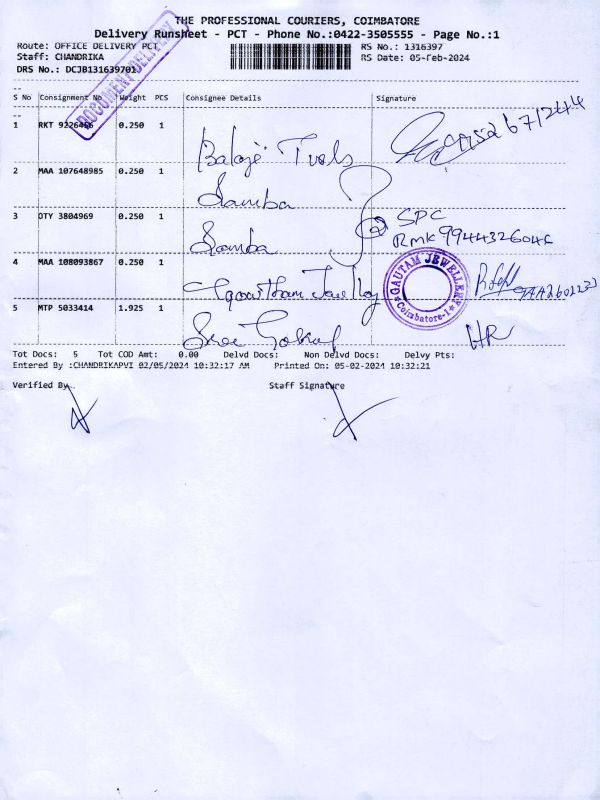 THE PROFESSIONAL COURIERS, COIMBATORE
Delivery Runsheet - PCT - Phone No.:0422-3505555 - Page No.:1
Route: OFFICE DELIVERY PCT
RS No.: 1316397
Staff: CHANDRIKA
RS Date: 05-Feb-2024
DRS No.: DCJB131639701J
DOCUMENT DELIVERY
S No Consignment No Weight PCS Consignee Details Signature
1 RKT 9226456 0.250 1 Balaji Tools
2 MAA 107648985 0.250 1 Samba
3 OTY 3804969 0.250 1 Samba SPC
RMK
4 MAA 108093867 0.250 1 Gowtham
GAUTAM JEWELLERY
Coimbatore-1
5 MTP 5033414 1.925 1 Sree HR
Tot Docs: 5 Tot COD Amt: 0.00 Delvd Docs: Non Delvd Docs: Delvy Pts:
Entered By :CHANDRIKAPVI 02/05/2024 10:32:17 AM Printed On: 05-02-2024 10:32:21
Verified By. Staff Signature